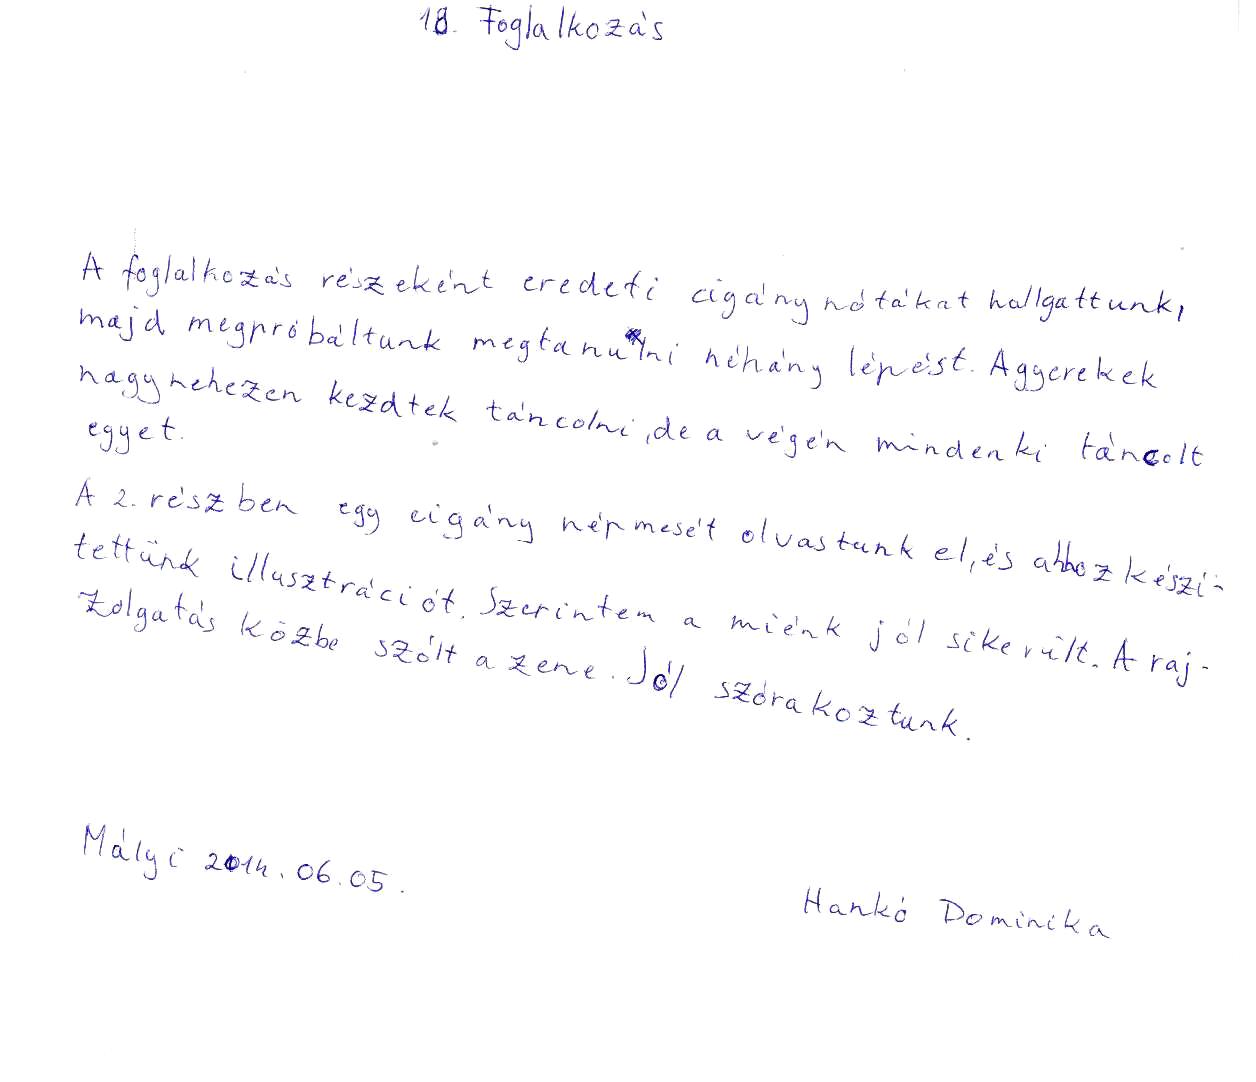 18. Foglalkozás
A foglalkozás részeként eredeti cigány nótákat hallgattunk,
majd megpróbáltunk megtanulni néhány lépést. A gyerekek
nagy nehezen kezdtek táncolni, de a végén mindenki táncolt
egyet.
A 2. részben egy cigány népmesét olvastunk el, és ahhoz készí-
tettünk illusztrációt. Szerintem a miénk jól sikerült. A raj-
zolgatás közbe szólt a zene. Jól szórakoztunk.
Mályi 2014.06.05.
Hankó Dominika